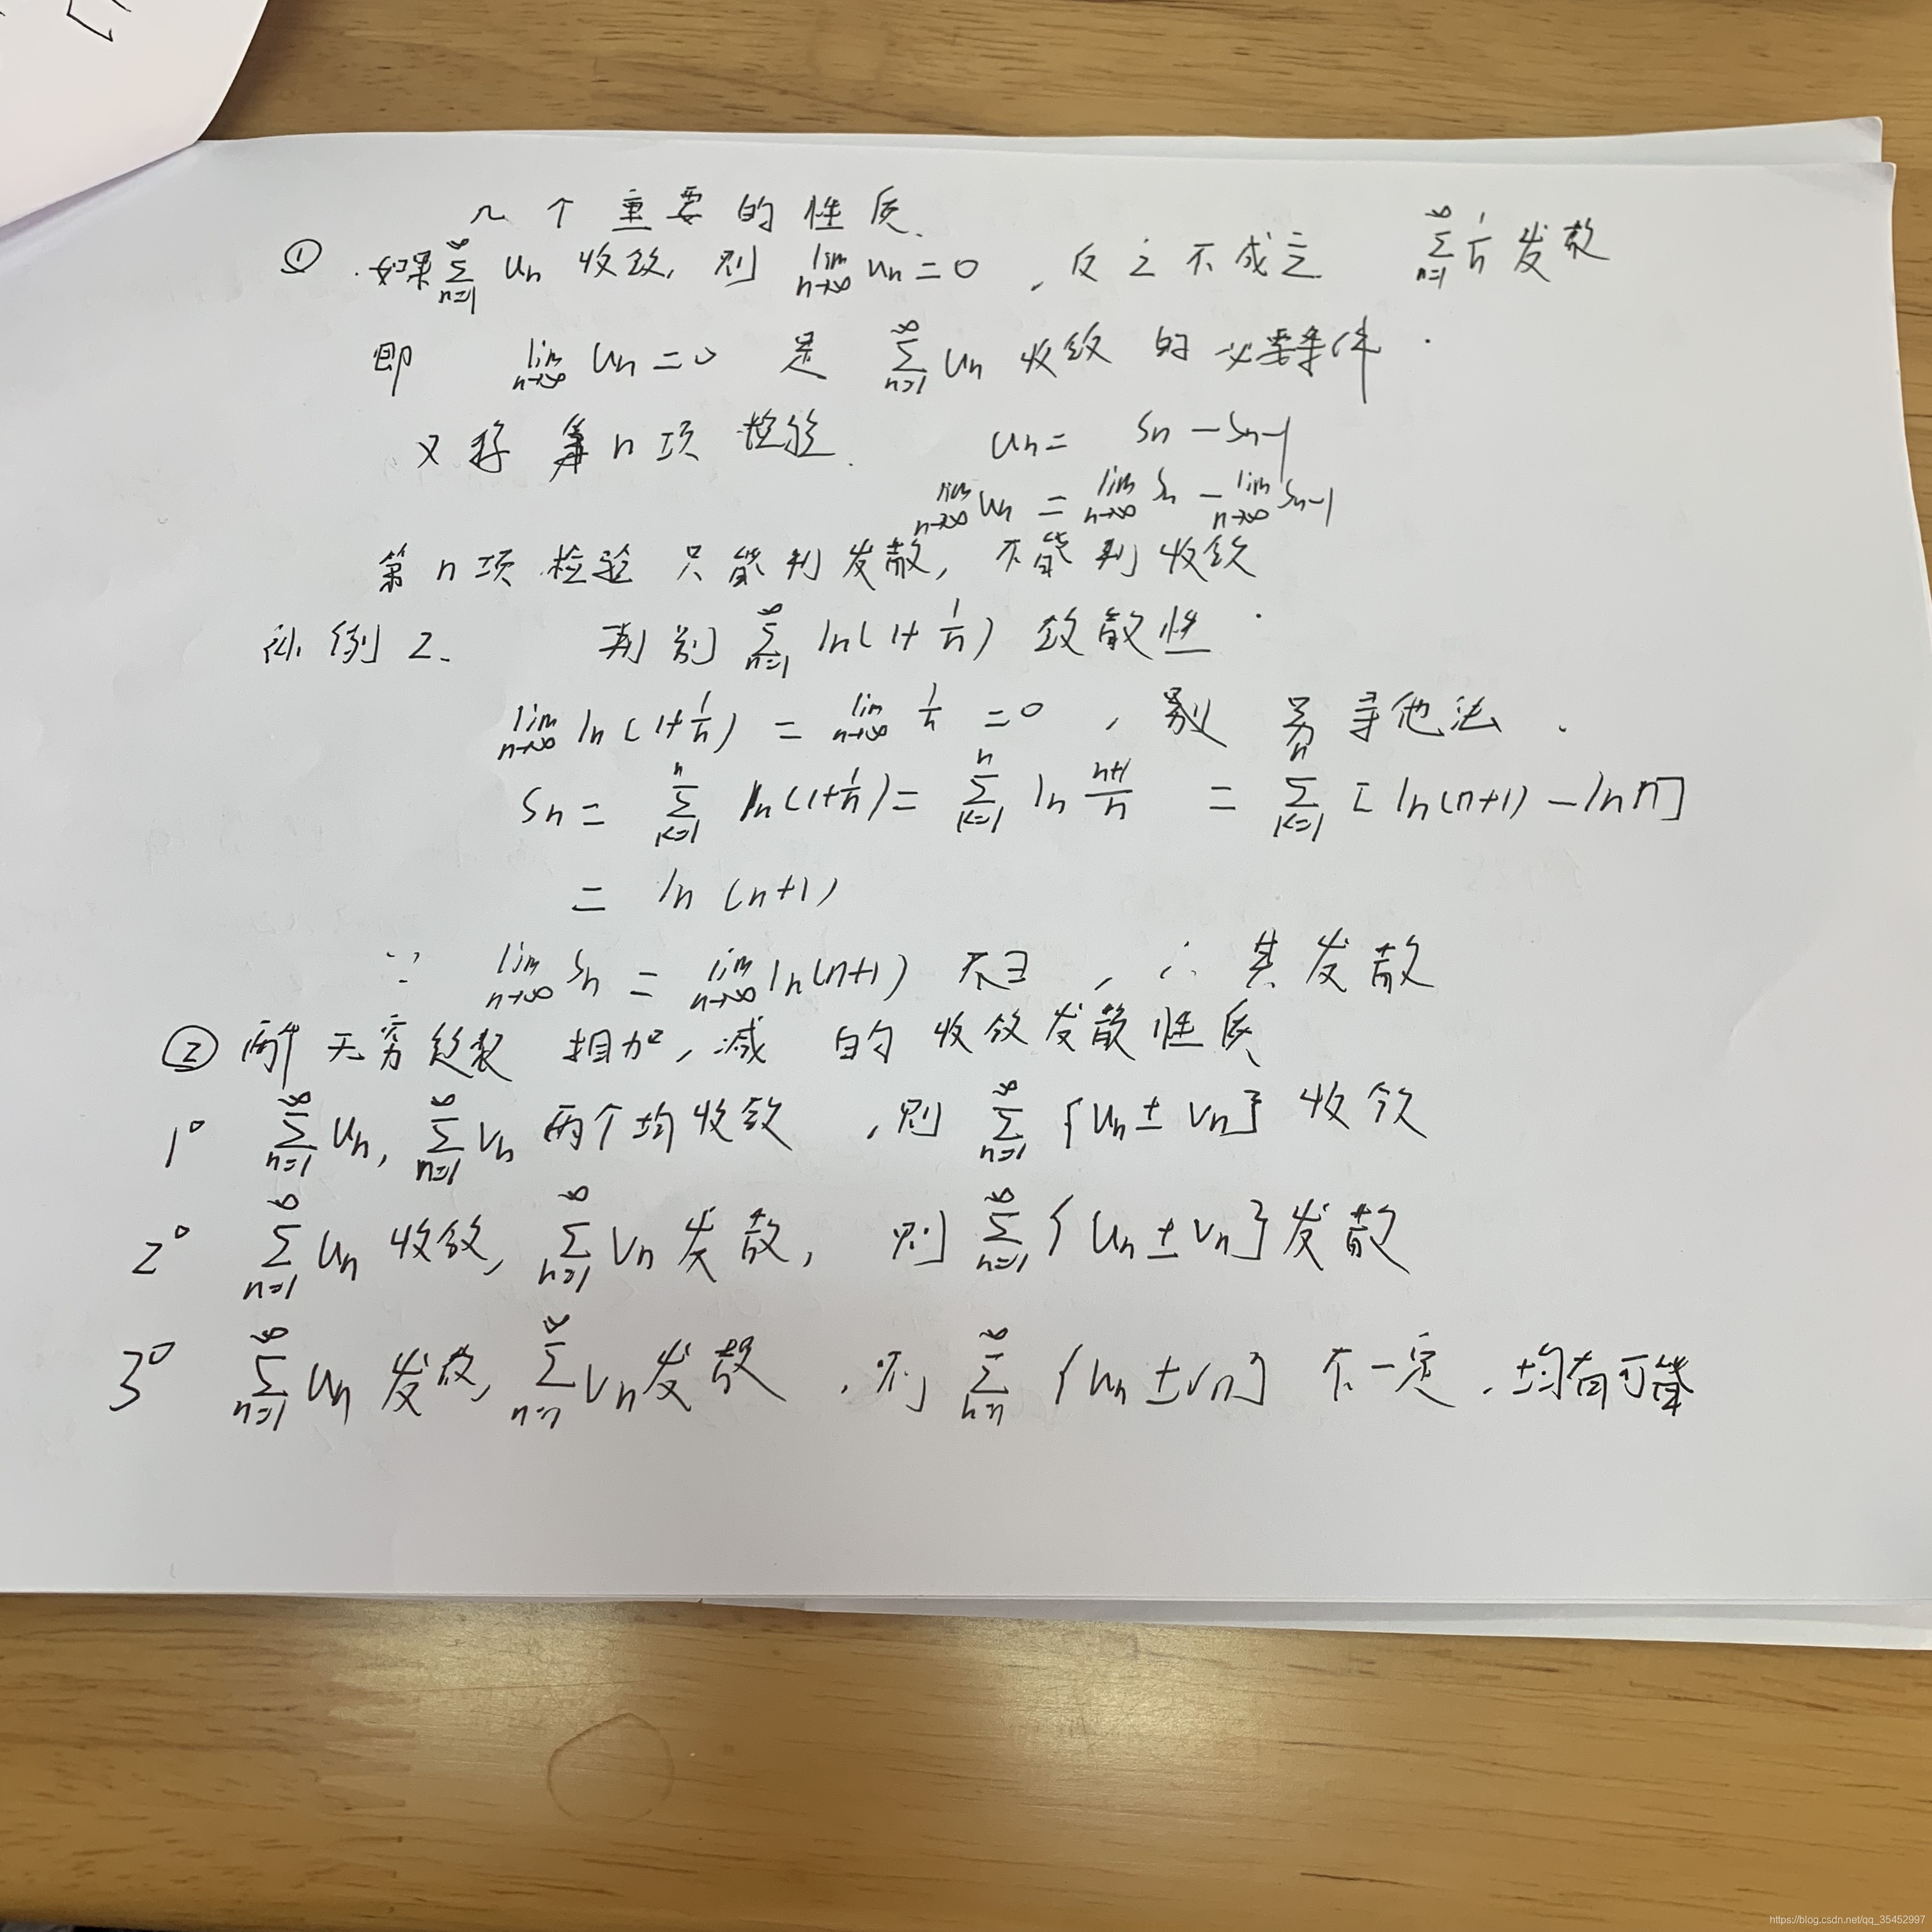 几个重要的性质.
① 如果 ∑_{n=1}^{∞} uₙ 收敛, 则 lim_{n→∞} uₙ = 0 , 反之不成立 ∑_{n=1}^{∞} 1/n 发散
即 lim_{n→∞} uₙ = 0 是 ∑_{n=1}^{∞} uₙ 收敛 的 必要条件 .
又称 第 n 项 检验. uₙ = Sₙ - Sₙ₋₁
lim_{n→∞} uₙ = lim_{n→∞} Sₙ - lim_{n→∞} Sₙ₋₁
第 n 项 检验 只能判发散, 不能判收敛
例2. 判别 ∑_{n=1}^{∞} ln(1+1/n) 敛散性 .
lim_{n→∞} ln(1+1/n) = lim_{n→∞} 1/n = 0 , 另寻他法 .
Sₙ = ∑_{k=1}^{n} ln(1+1/n) = ∑_{k=1}^{n} ln (n+1)/n = ∑_{k=1}^{n} [ln(n+1) - ln n]
= ln(n+1)
∵ lim_{n→∞} Sₙ = lim_{n→∞} ln(n+1) 不∃ , ∴ 其发散
② 两个无穷级数 相加, 减 的 收敛发散性质
1° ∑_{n=1}^{∞} uₙ, ∑_{n=1}^{∞} vₙ 两个均收敛 , 则 ∑_{n=1}^{∞} {uₙ ± vₙ} 收敛
2° ∑_{n=1}^{∞} uₙ 收敛, ∑_{n=1}^{∞} vₙ 发散, 则 ∑_{n=1}^{∞} {uₙ ± vₙ} 发散
3° ∑_{n=1}^{∞} uₙ 发散, ∑_{n=1}^{∞} vₙ 发散 , 则 ∑_{n=1}^{∞} {uₙ ± vₙ} 不一定 , 均有可能
https://blog.csdn.net/qq_35452997